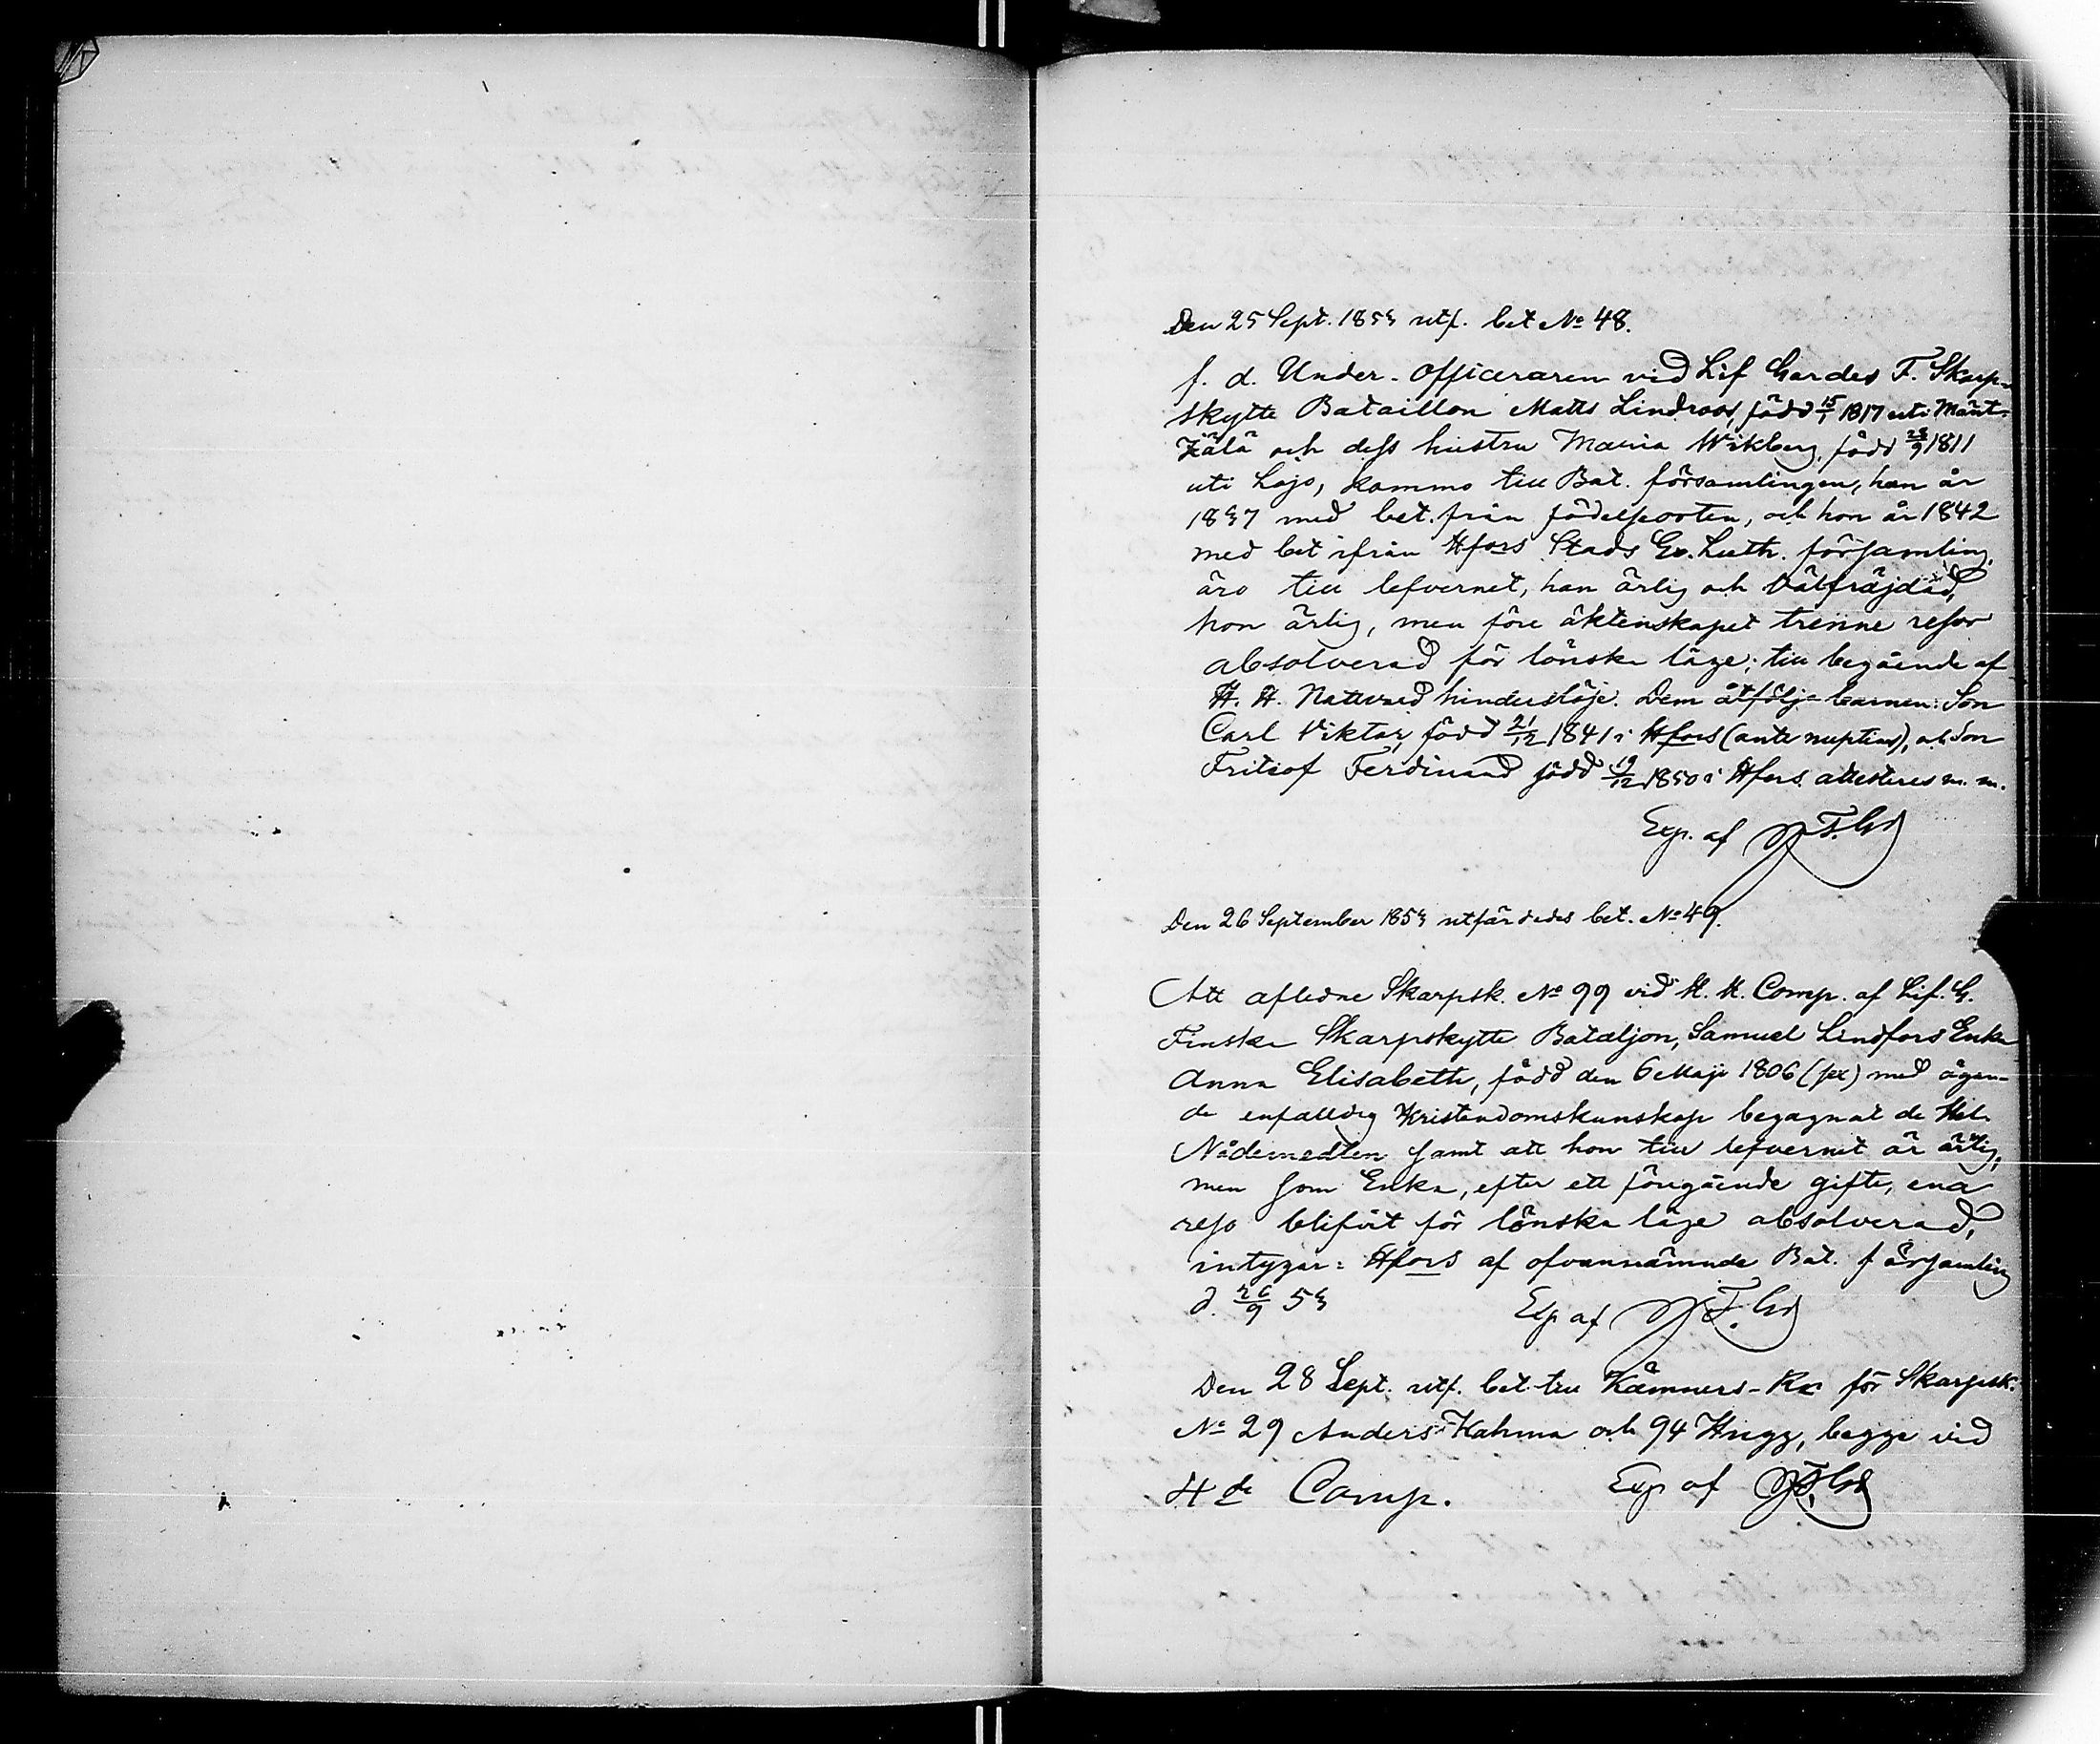 Den 25 Sept. 1853 utf. bet № 48.
f. d. Under-Officeraren vid Lif Gardes F. Skarp-
skytte Bataillon Matts Lindroos, född 15/1 1817 uti Mänt-
zälä och dess hustru Maria Wikberg, född 28/9 1811
uti Lojo, kommo till Bat. församlingen, han år
1837 med bet. från födelseorten, och hon år 1842
med bet ifrån Hfors Stads Ev. Luth. församling,
äro till lefvernet, han ärlig och välfräjdad,
hon ärlig, men före äktenskapet trenne resor
absolverad för lönska läge; till begående af
H. H. Nattvard hinderslöje. Dem åtfölja barnen: Son
Carl Viktor, född 21/12 1841 i Hfors (ante nuptias), och Son
Fritiof Ferdinand född 19/12 1850 i Hfors. attesteres m. m.
Exp. af
Den 26 September 1853 utfärdedes bet. № 49.
Att aflidne Skarpsk. № 99 vid H. K. Comp. af Lif. G.
Finska Skarpskytte Bataljon, Samuel Lindfors Enka
Anna Elisabeth, född den 6 Maji 1806 med ägan-
de enfalldig Kristendomskunskap begagnat de Hel.
Nådemedlen samt att hon till lefvernet är ärlig,
men som Enka, efter ett föregående gifte, ena
reso blifvit för lönska läge absolverad,
intygar: Hfors af ofvannämnde Bat. församling
d. 26/9 53 Exp af
Den 28 Sept. utf. bet till Kämners-Rr för Skarpsk.
№ 29 Anders Kahma och 94 Hugg, begge vid
4de Comp. Exp af